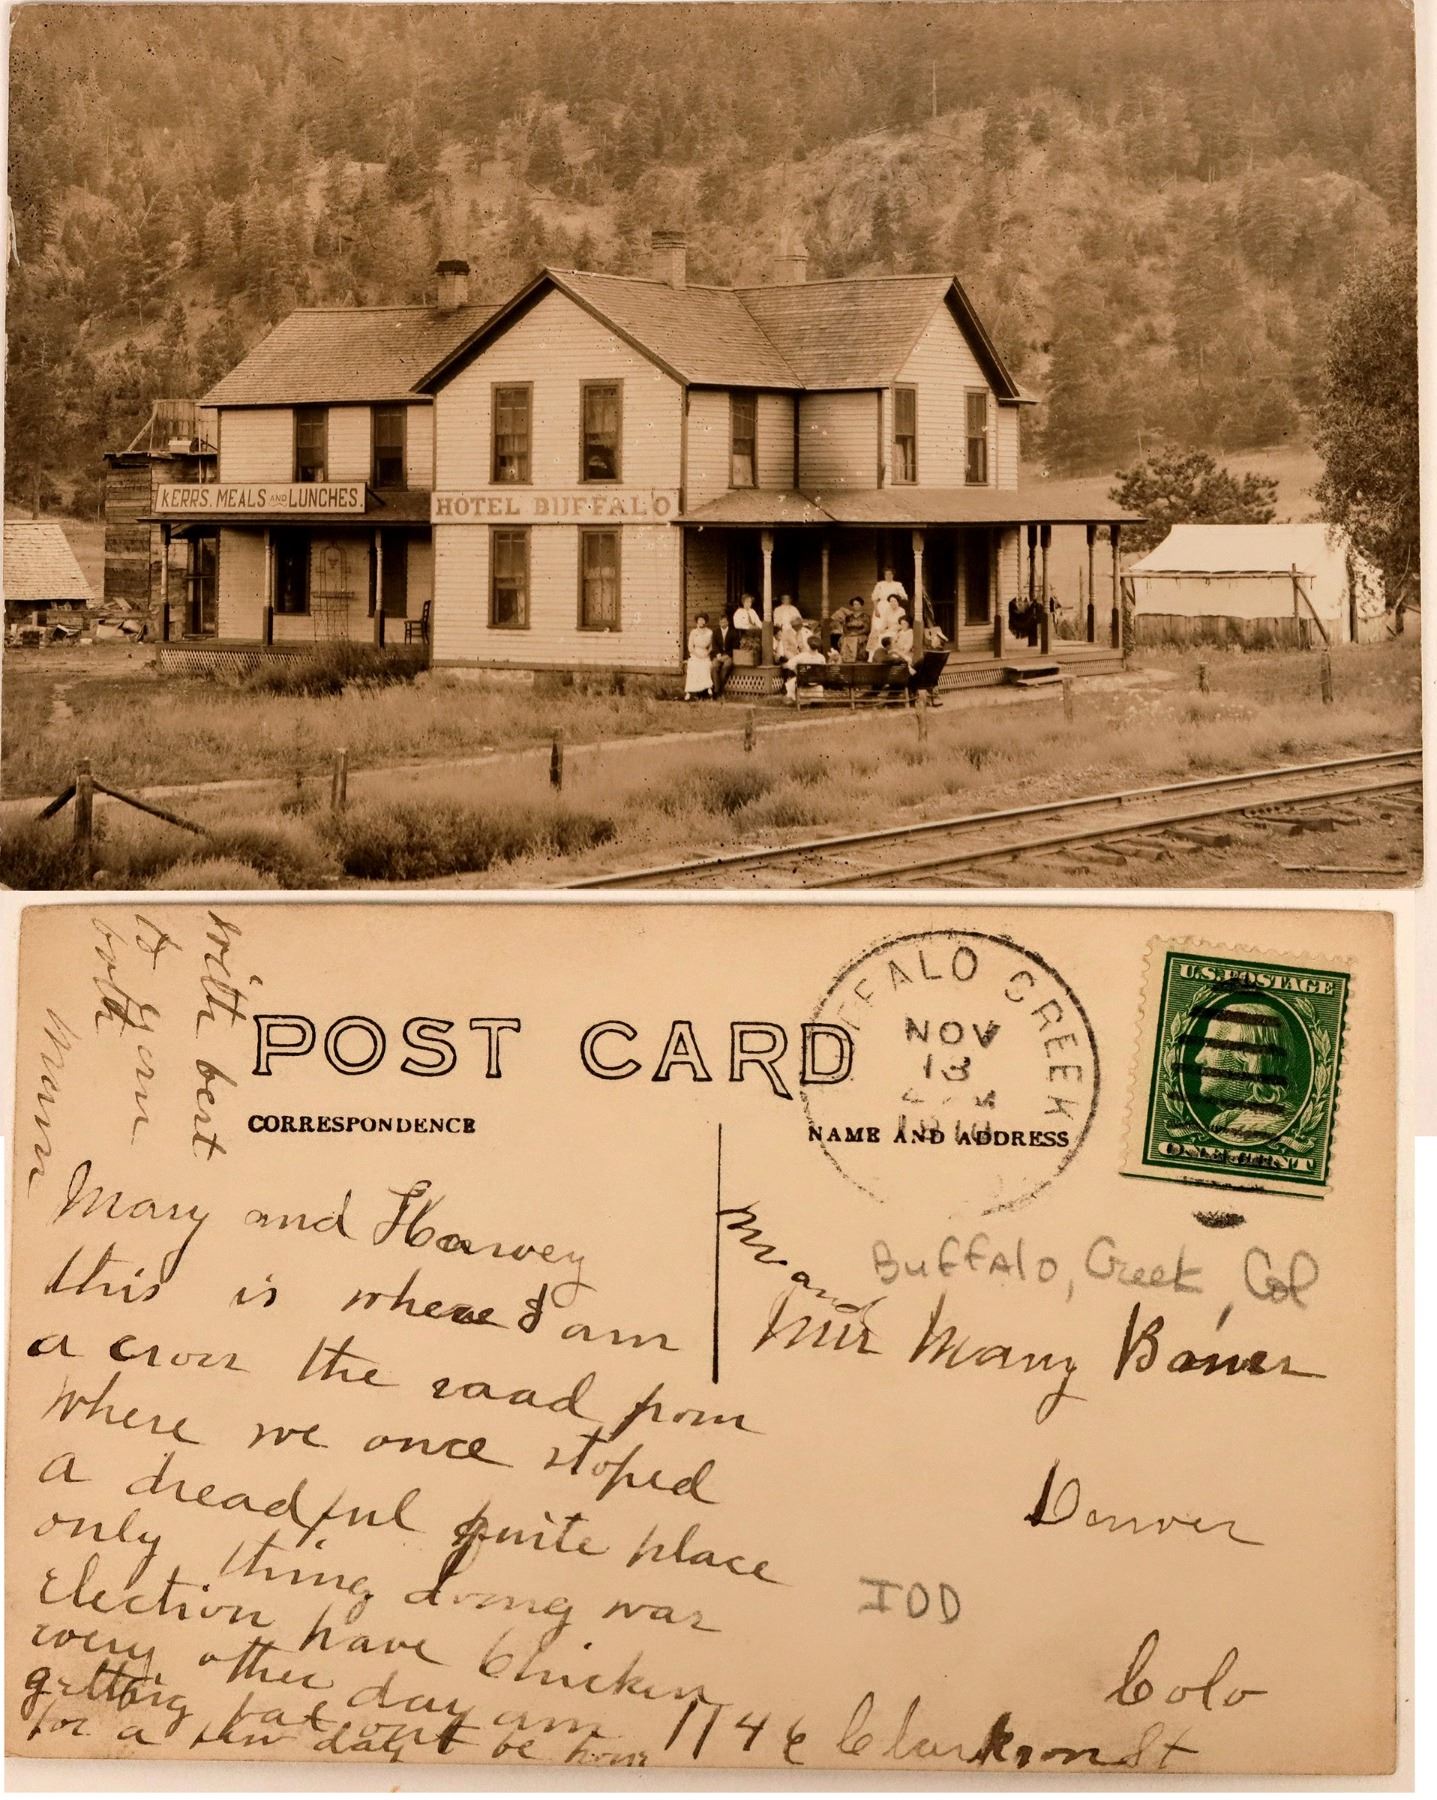 KERRS. MEALS AND LUNCHES.
HOTEL BUFFALO
with best
to you
both
POST CARD
CORRESPONDENCE
NAME AND ADDRESS
BUFFALO CREEK
NOV
13
U.S. POSTAGE
ONE CENT
Mary and Harvey
this is where I am
a cross the road from
where we once stoped
a dreadful quite place
only thing doing was
Election have Chicken
every other day am
getting fat
for a few days be home
Buffalo, Creek, Col
Mr and
Mrs Mary
Denver
Colo
1746 Clarkson St
IOD